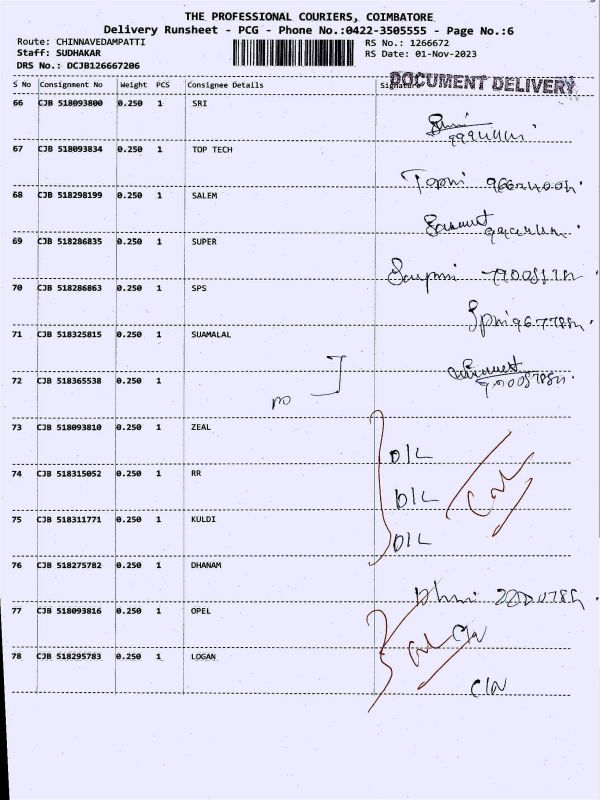 THE PROFESSIONAL COURIERS, COIMBATORE
Delivery Runsheet - PCG - Phone No.:0422-3505555 - Page No.:6
Route: CHINNAVEDAMPATTI RS No.: 1266672
Staff: SUDHAKAR RS Date: 01-Nov-2023
DRS No.: DCJB126667206
DOCUMENT DELIVERY
S No Consignment No Weight PCS Consignee Details Signature
66 CJB 518093800 0.250 1 SRI
67 CJB 518093834 0.250 1 TOP TECH
68 CJB 518298199 0.250 1 SALEM
69 CJB 518286835 0.250 1 SUPER
70 CJB 518286863 0.250 1 SPS
71 CJB 518325815 0.250 1 SUAMALAL
72 CJB 518365538 0.250 1
73 CJB 518093810 0.250 1 ZEAL D/L
74 CJB 518315052 0.250 1 RR D/L
75 CJB 518311771 0.250 1 KULDI D/L
76 CJB 518275782 0.250 1 DHANAM
77 CJB 518093816 0.250 1 OPEL
78 CJB 518295783 0.250 1 LOGAN